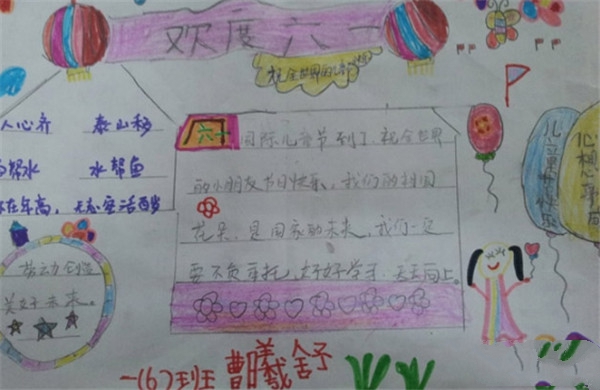 欢度六一
祝全世界的
人心齐 泰山移
鱼帮水 水帮鱼
不在年高,无志空活百岁
劳动创造
美好未来。
六一国际儿童节到了,祝全世界
的小朋友节日快乐,我们的祖国
花朵,是国家的未来,我们一定
要不负重托,好好学习,天天向上。
儿童节快乐
心想事成
一(6)班 曹曦舒